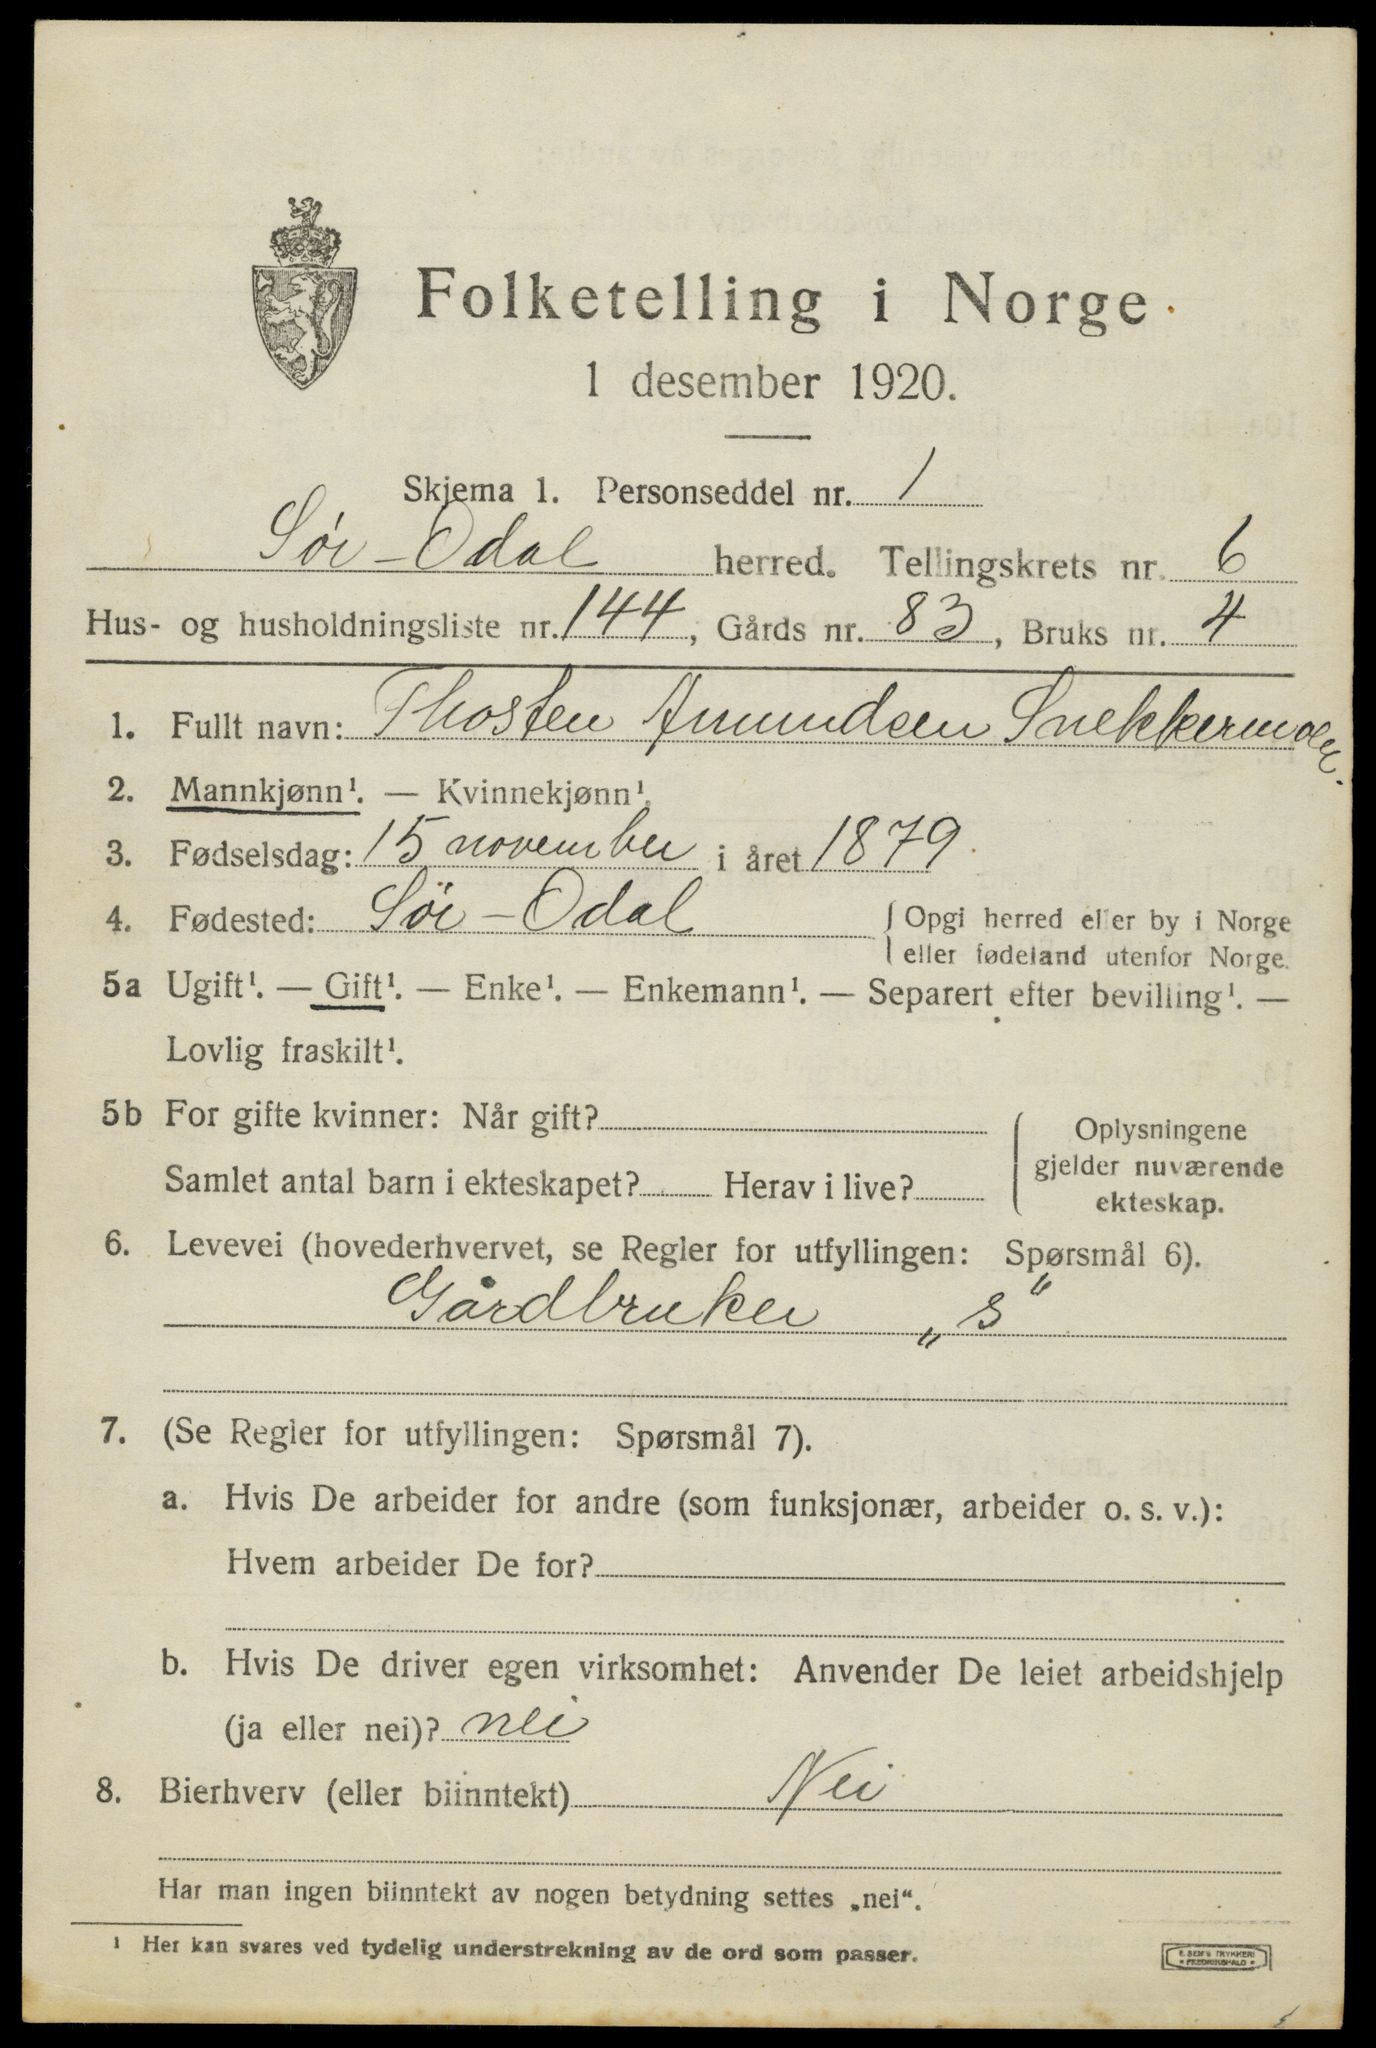 Folketelling i Norge
1 desember 1920.
Skjema 1. Personseddel nr. 1
Sör-Odal herred. Tellingskrets nr. 6
Hus- og husholdningsliste nr. 144, Gårds nr. 83, Bruks nr. 4
1. Fullt navn: Thosten Amundsen Snekkermoen.
2. Mannkjønn¹. — Kvinnekjønn¹.
3. Fødselsdag: 15 november i året 1879
4. Fødested: Sör-Odal { Opgi herred eller by i Norge
eller fødeland utenfor Norge.
5a Ugift¹. — Gift¹. — Enke¹. — Enkemann¹. — Separert efter bevilling¹. —
Lovlig fraskilt¹.
5b For gifte kvinner: Når gift?
Samlet antal barn i ekteskapet? Herav i live?
Oplysningene
gjelder nuværende
ekteskap.
6. Levevei (hovederhvervet, se Regler for utfyllingen: Spørsmål 6).
Gårdbruker „s“
7. (Se Regler for utfyllingen: Spørsmål 7).
a. Hvis De arbeider for andre (som funksjonær, arbeider o. s. v.):
Hvem arbeider De for?
b. Hvis De driver egen virksomhet: Anvender De leiet arbeidshjelp
(ja eller nei)? nei
8. Bierhverv (eller biinntekt) Nei
Har man ingen biinntekt av nogen betydning settes „nei“.
¹ Her kan svares ved tydelig understrekning av de ord som passer.
E. SEM'S TRYKKERI
FREDRIKSHALD